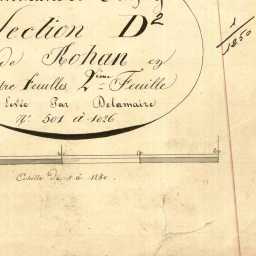 Section D2
de Rohan en
tre feuilles 2ème Feuille
Levée Par Delamaire
No 501 à 1026
1
1250
Echelle de 1 à 1250.